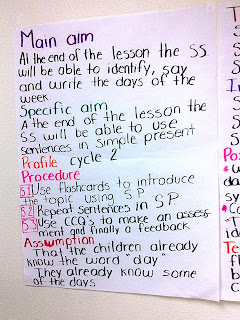 Main aim
At the end of the lesson the SS
will be able to identify, say
and write the days of the
week.
Specific aim
A the end of the lesson the
SS will be able to use
sentences in simple present
Profile cycle 2
Procedure
S.1 Use flashcards to introduce
the topic using SP
S.2 Repeat sentences in SP
S.3 Use CCQ's to make an assess-
ment and finally a feedback
Assumption
That the children already
know the word "day"
They already know some
of the days